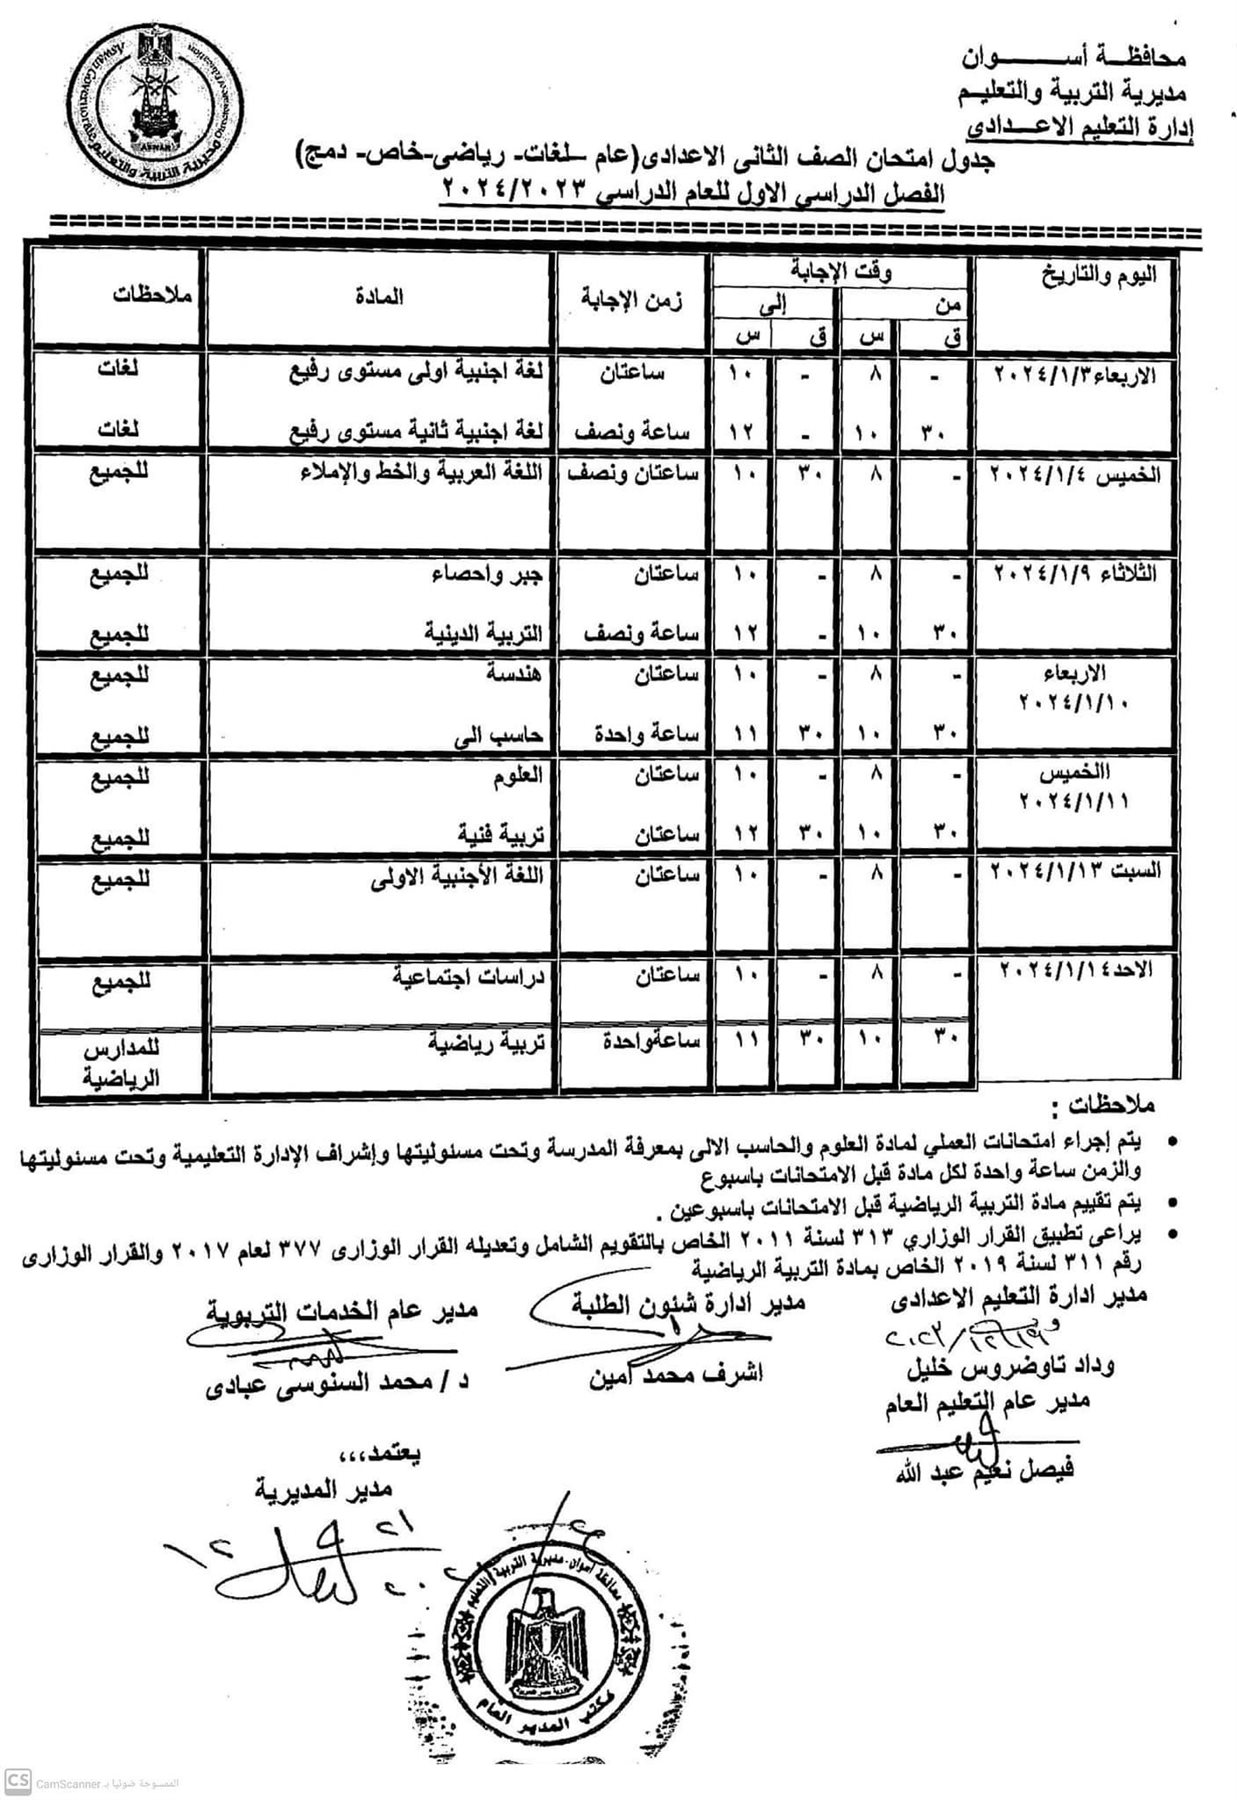 محافظة أسوان
مديرية التربية والتعليم
إدارة التعليم الاعدادى
جدول امتحان الصف الثانى الاعدادى(عام –لغات- رياضى-خاص- دمج)
الفصل الدراسي الاول للعام الدراسي ٢٠٢٤/٢٠٢٣
اليوم والتاريخ وقت الإجابة زمن الإجابة المادة ملاحظات
من إلى
ق س ق س
الاربعاء٢٠٢٤/١/٣ - ٨ - ١٠ ساعتان لغة اجنبية اولى مستوى رفيع لغات
٣٠ ١٠ - ١٢ ساعة ونصف لغة اجنبية ثانية مستوى رفيع لغات
الخميس ٢٠٢٤/١/٤ - ٨ ٣٠ ١٠ ساعتان ونصف اللغة العربية والخط والإملاء للجميع
الثلاثاء ٢٠٢٤/١/٩ - ٨ - ١٠ ساعتان جبر واحصاء للجميع
٣٠ ١٠ - ١٢ ساعة ونصف التربية الدينية للجميع
الاربعاء - ٨ - ١٠ ساعتان هندسة للجميع
٢٠٢٤/١/١٠
٣٠ ١٠ ٣٠ ١١ ساعة واحدة حاسب الى للجميع
االخميس - ٨ - ١٠ ساعتان العلوم للجميع
٢٠٢٤/١/١١
٣٠ ١٠ ٣٠ ١٢ ساعتان تربية فنية للجميع
السبت ٢٠٢٤/١/١٣ - ٨ - ١٠ ساعتان اللغة الأجنبية الاولى للجميع
الاحد٢٠٢٤/١/١٤ - ٨ - ١٠ ساعتان دراسات اجتماعية للجميع
٣٠ ١٠ ٣٠ ١١ ساعةواحدة تربية رياضية للمدارس
الرياضية
ملاحظات :
• يتم إجراء امتحانات العملي لمادة العلوم والحاسب الالى بمعرفة المدرسة وتحت مسئوليتها وإشراف الإدارة التعليمية وتحت مسئوليتها
والزمن ساعة واحدة لكل مادة قبل الامتحانات باسبوع
• يتم تقييم مادة التربية الرياضية قبل الامتحانات باسبوعين .
• يراعى تطبيق القرار الوزاري ٣١٣ لسنة ٢٠١١ الخاص بالتقويم الشامل وتعديله القرار الوزارى ٣٧٧ لعام ٢٠١٧ والقرار الوزارى
رقم ٣١١ لسنة ٢٠١٩ الخاص بمادة التربية الرياضية
مدير ادارة التعليم الاعدادى مدير ادارة شئون الطلبة مدير عام الخدمات التربوية
وداد تاوضروس خليل اشرف محمد امين د / محمد السنوسى عبادى
مدير عام التعليم العام
فيصل نعيم عبد الله
يعتمد،،،
مدير المديرية
محافظة أسوان - مديرية التربية والتعليم
مكتب المدير العام
CS CamScanner الممسوحة ضوئيا بـ